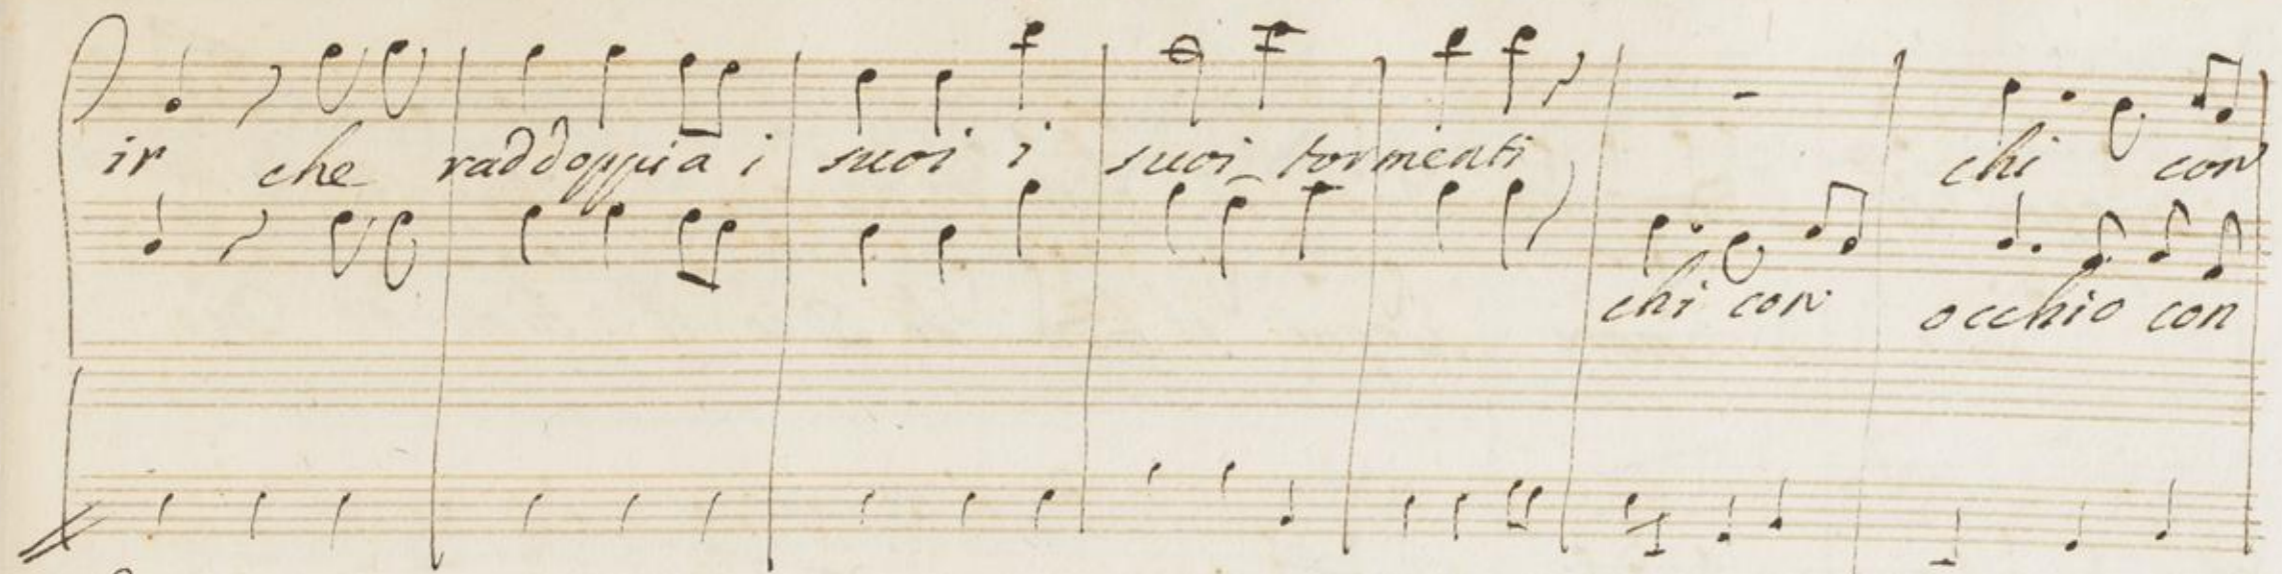 ir che raddoppia i suoi i suoi tormenti chi con
chi con occhio con